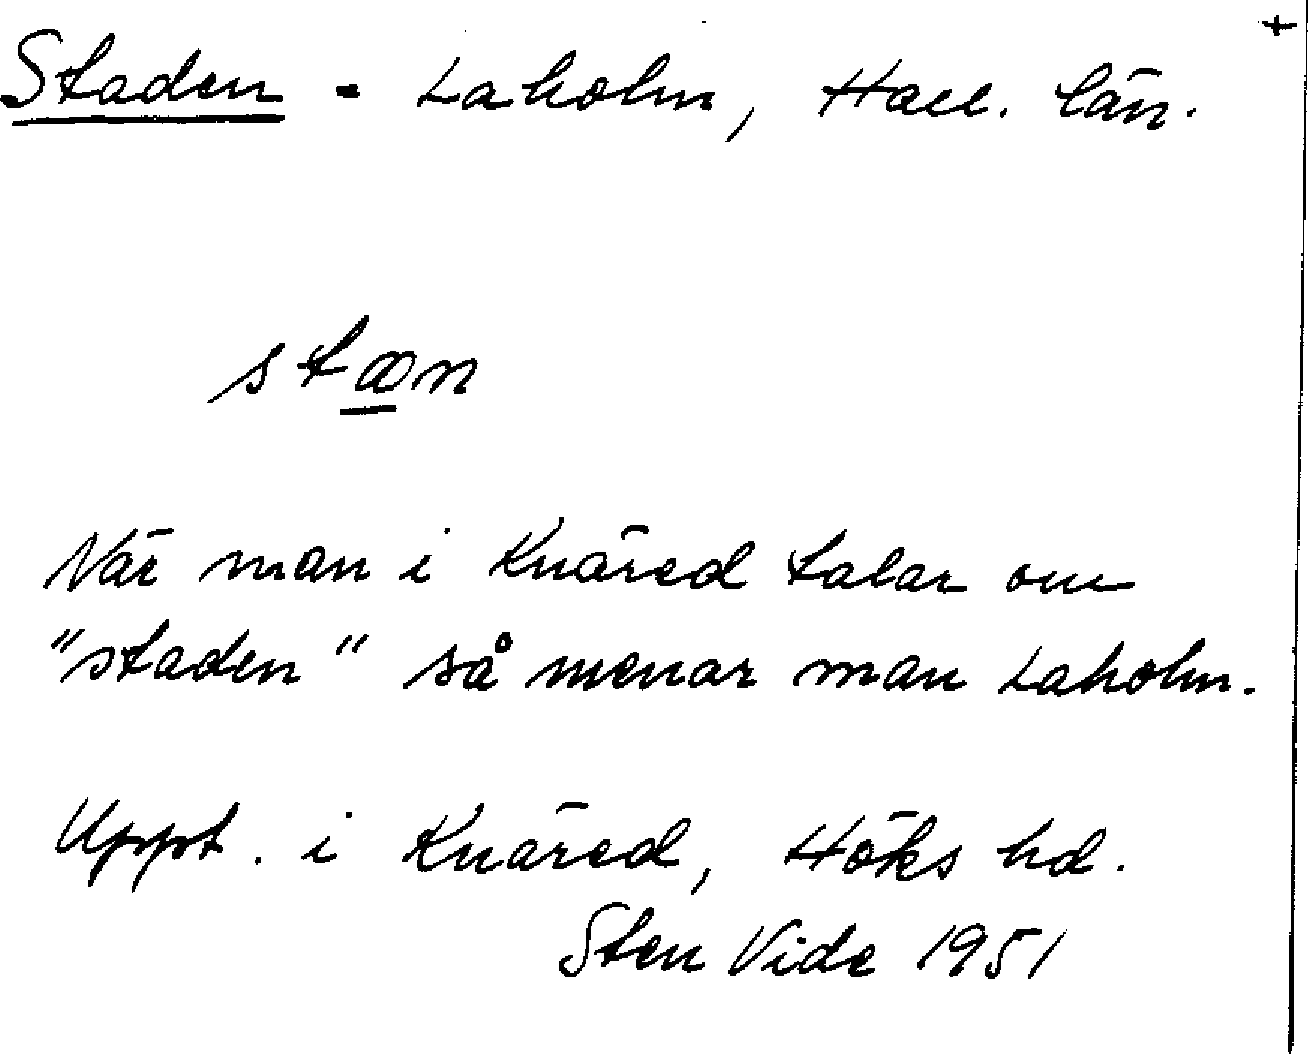 +
Staden = Laholm, Hall. län.
stæn
När man i Knäred talar om
"staden" så menar man Laholm.
Uppt. i Knäred, Höks hd.
Sten Vide 1951